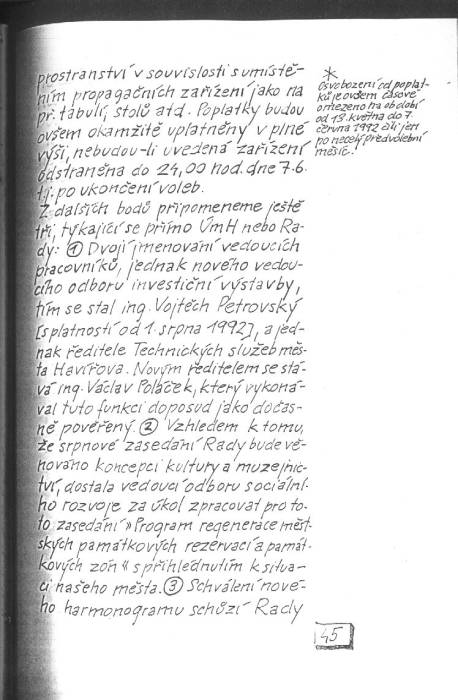 prostranství v souvislosti s umístě-
ním propagačních zařízení jako na
př. tabulí, stolů atd. Poplatky budou
ovšem okamžitě uplatněny v plné
výši, nebudou-li uvedená zařízení
odstraněna do 24,00 hod. dne 7.6.
tj. po ukončení voleb.
Z dalších bodů připomeneme ještě
tři, týkající se přímo ÚmH nebo Ra-
dy: ① Dvojí jmenování vedoucích
pracovníků, jednak nového vedou-
cího odboru investiční výstavby,
tím se stal ing. Vojtěch Petrovský
[splatností od 1. srpna 1992], a jed-
nak ředitele Technických služeb měs-
ta Havířova. Novým ředitelem se stá-
vá ing. Václav Poláček, který vykoná-
val tuto funkci doposud jako dočas-
ně pověřený. ② Vzhledem k tomu,
že srpnové zasedání Rady bude vě-
nováno koncepci kultury a muzejnic-
tví, dostala vedoucí odboru sociální-
ho rozvoje za úkol zpracovat pro to-
to zasedání »Program regenerace měst-
ských památkových rezervací a památ-
kových zón« s přihlédnutím k situa-
ci našeho města. ③ Schválení nové-
ho harmonogramu schůzí Rady
*
Osvobození od poplat-
ků je ovšem časově
omezeno na období
od 13. května do 7.
června 1992 čili jen
po necelý předvolební
měsíc!
45